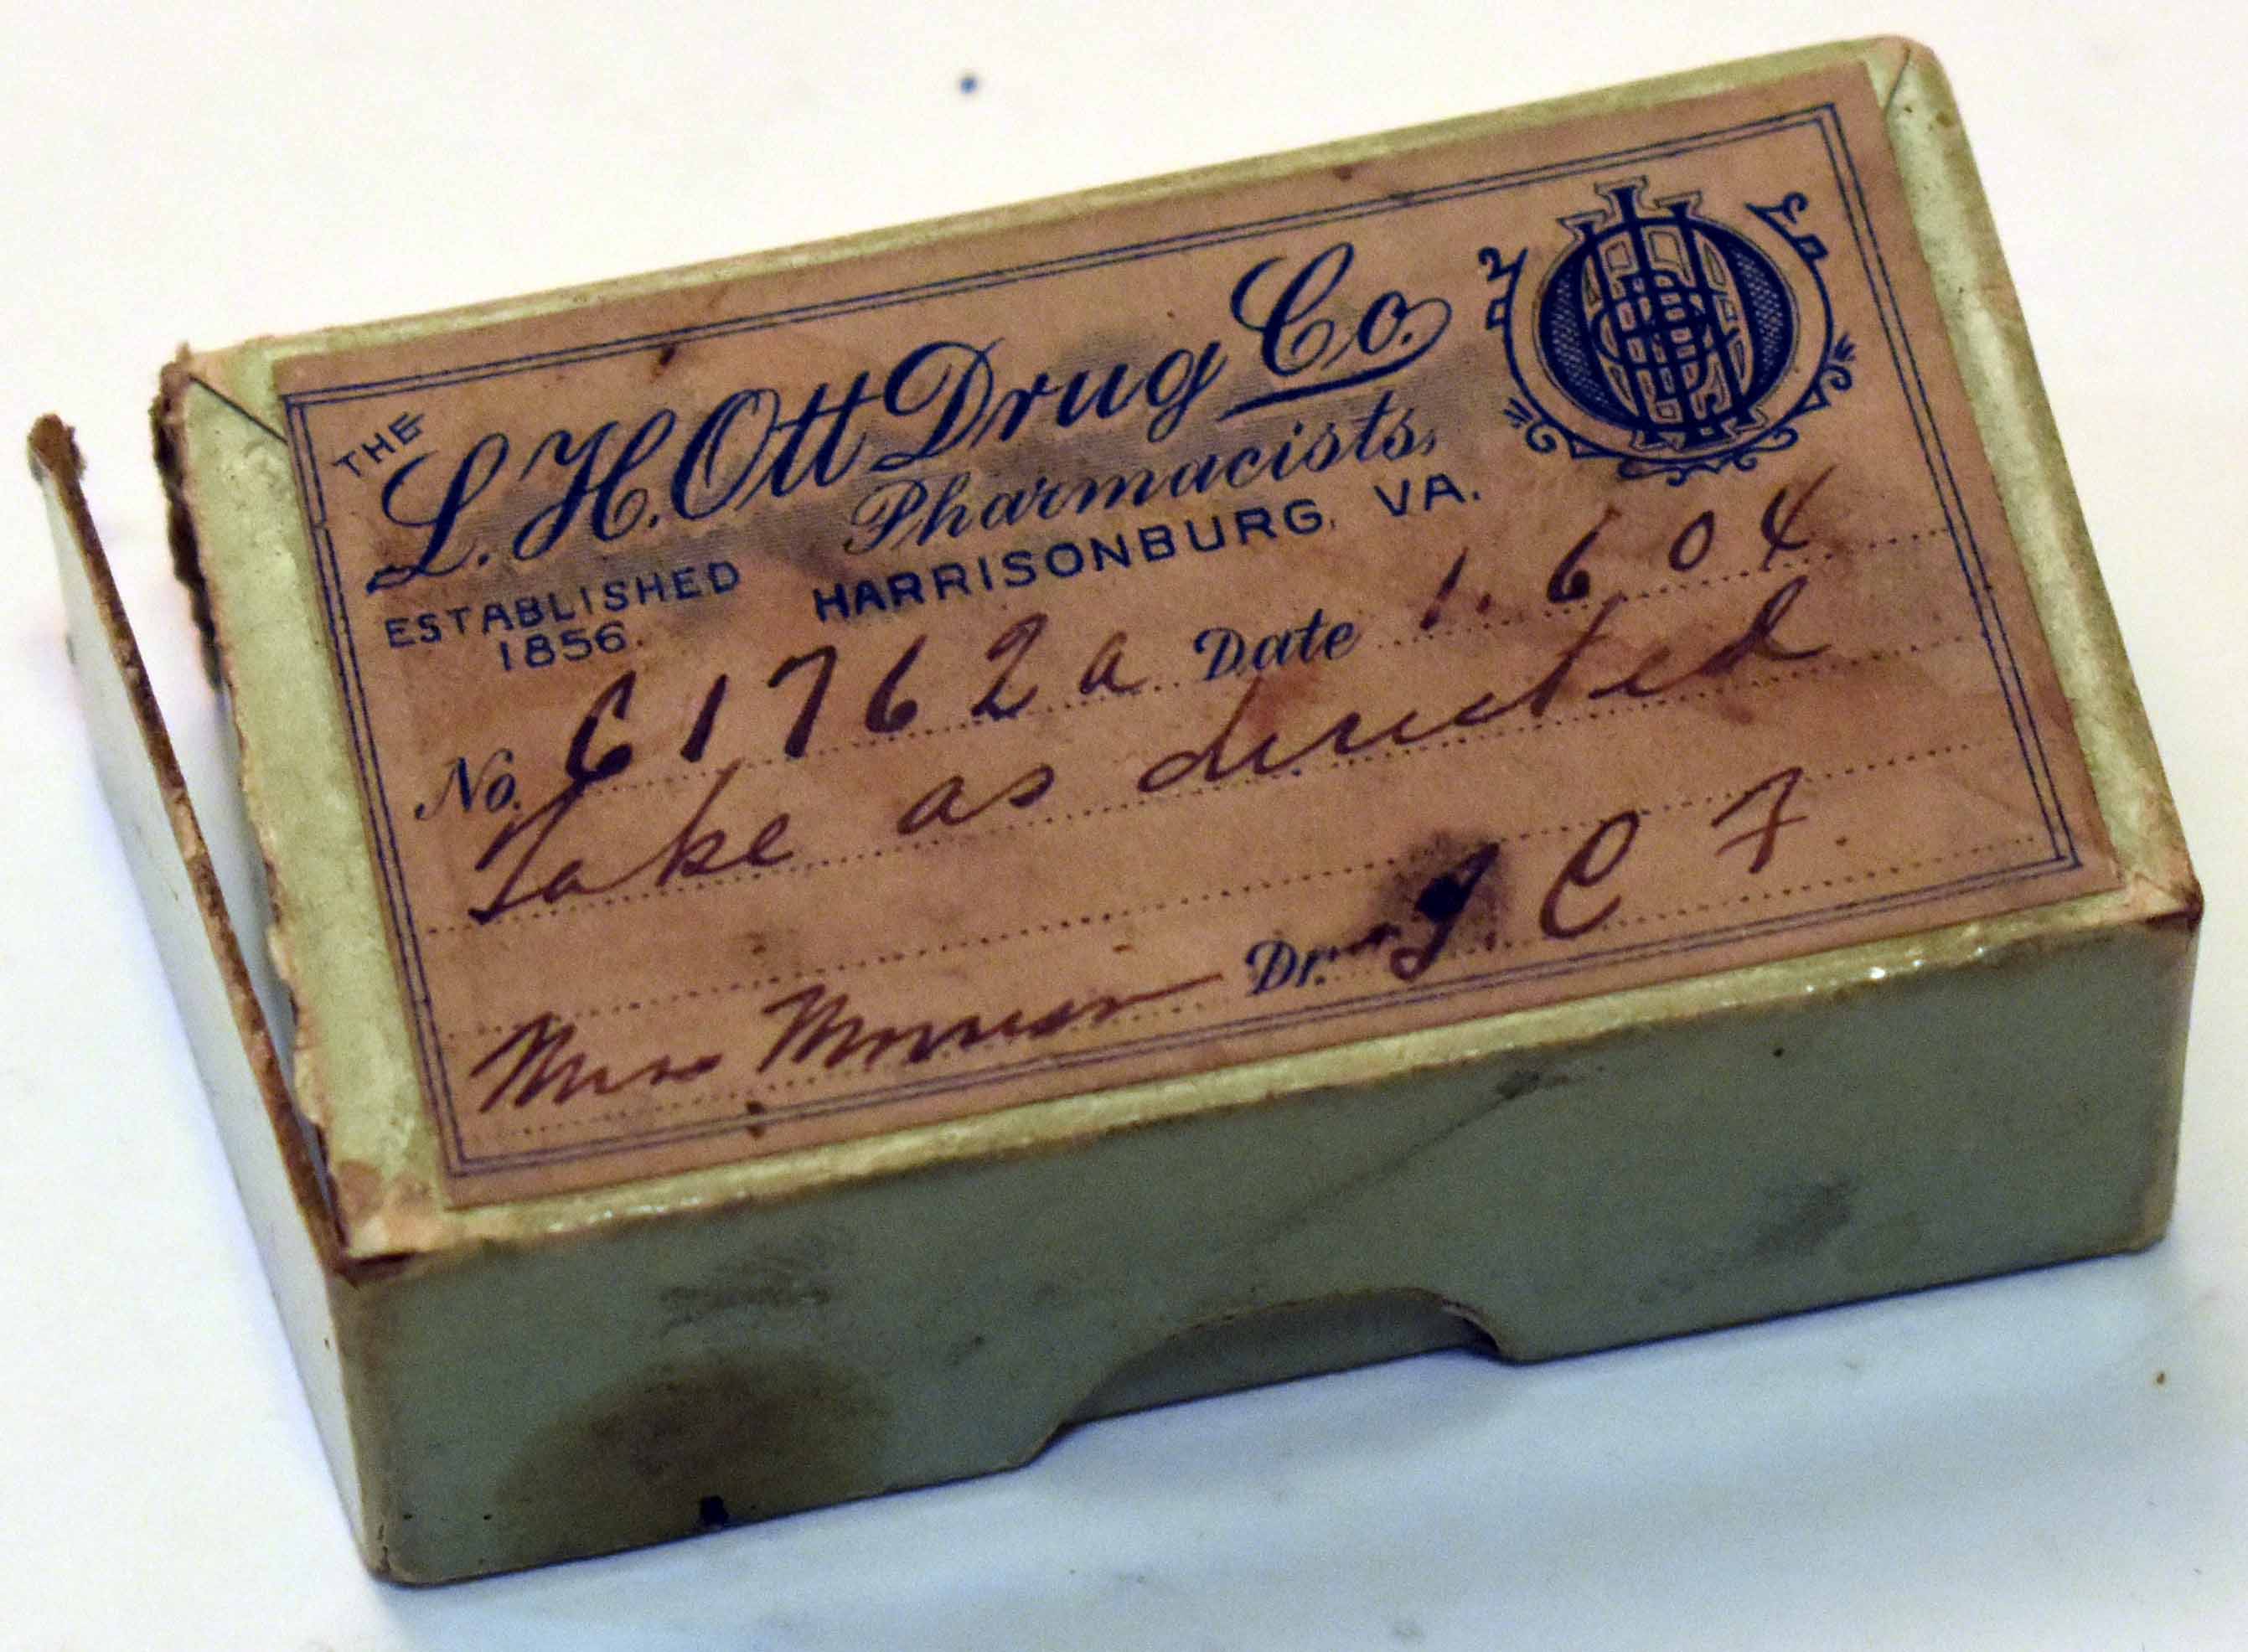 THE
L. H. Ott Drug Co.
Pharmacists,
ESTABLISHED HARRISONBURG, VA.
1856.
No. 61762a Date 1. 6 04
Take as directed
Dr. J. C F.